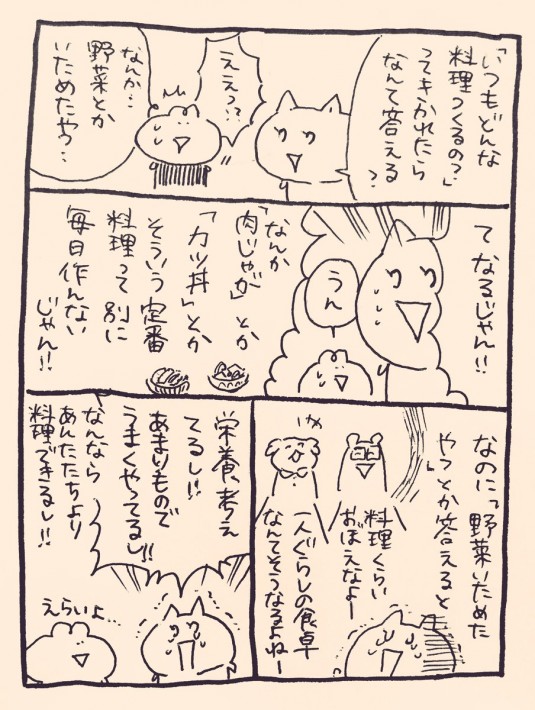 「いつもどんな
料理つくるの?」
ってきかれたら
なんて答える
?
ええっ?
なんか…
野菜とか
いためたやつ…
てなるじゃん!!
うん
なんか
「肉じゃが」とか
「カツ丼」とか
そういう定番
料理って別に
毎日作んない
じゃん!!
なのに「野菜いためた
やつ」とか答えると
料理くらい
おぼえなよー
一人ぐらしの食卓
なんてそうなるよねー
栄養考え
てるし!!
あまりもので
うまくやってるし!!
なんなら
あんたたちより
料理できるし!!
えらいよ…